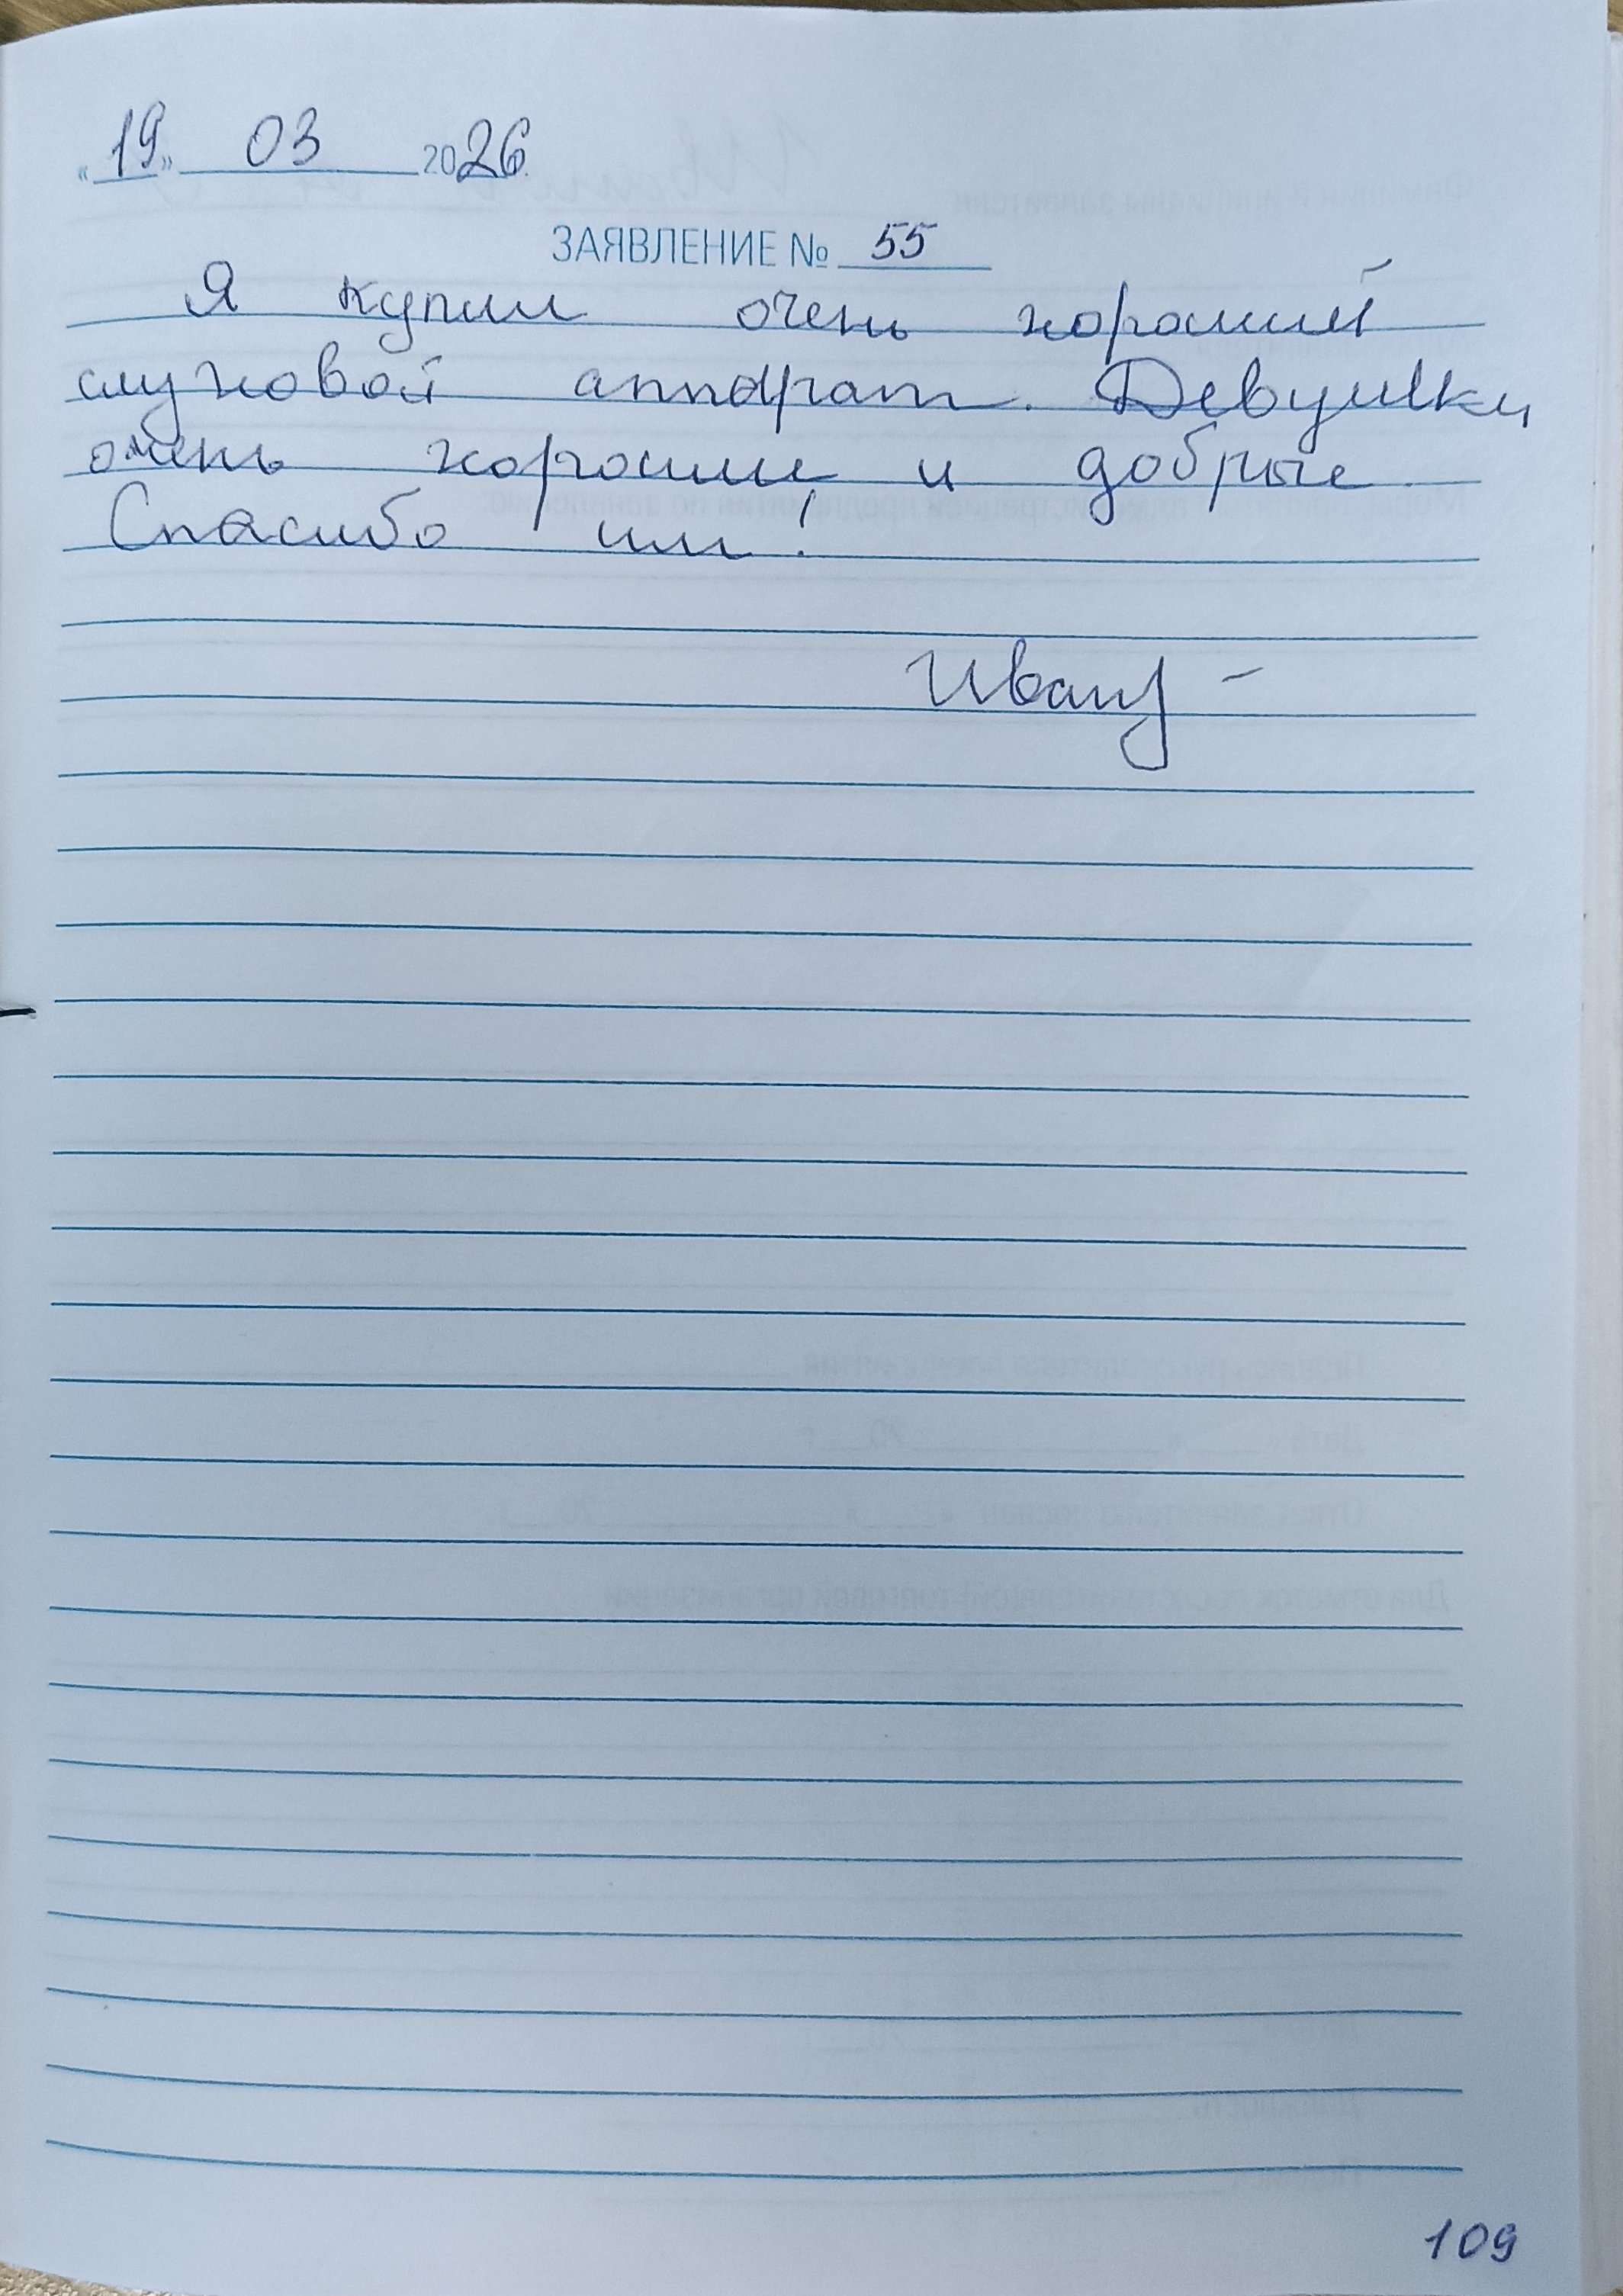 «19» 03 2026.
ЗАЯВЛЕНИЕ № 55
Я купил очень хороший
слуховой аппарат. Девушки
очень хорошие и добрые.
Спасибо им!
109